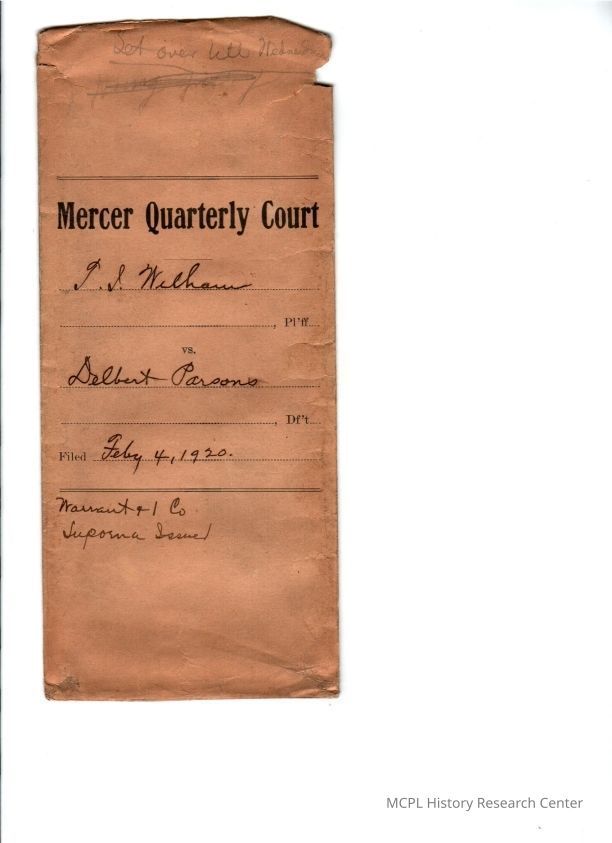 Set over till Wednesday
Mercer Quarterly Court
T. I. Welham
, Pl'ff.
vs.
Delbert Parsons
, Df't.
Filed Feby 4, 1920.
Warrant & 1 Co
Supoena Issued
MCPL History Research Center